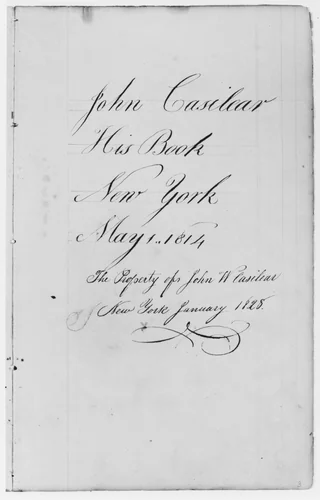 John Casilear
His Book
New York
May 1. 1814
The Property of John W Casilear
New York January 1828.